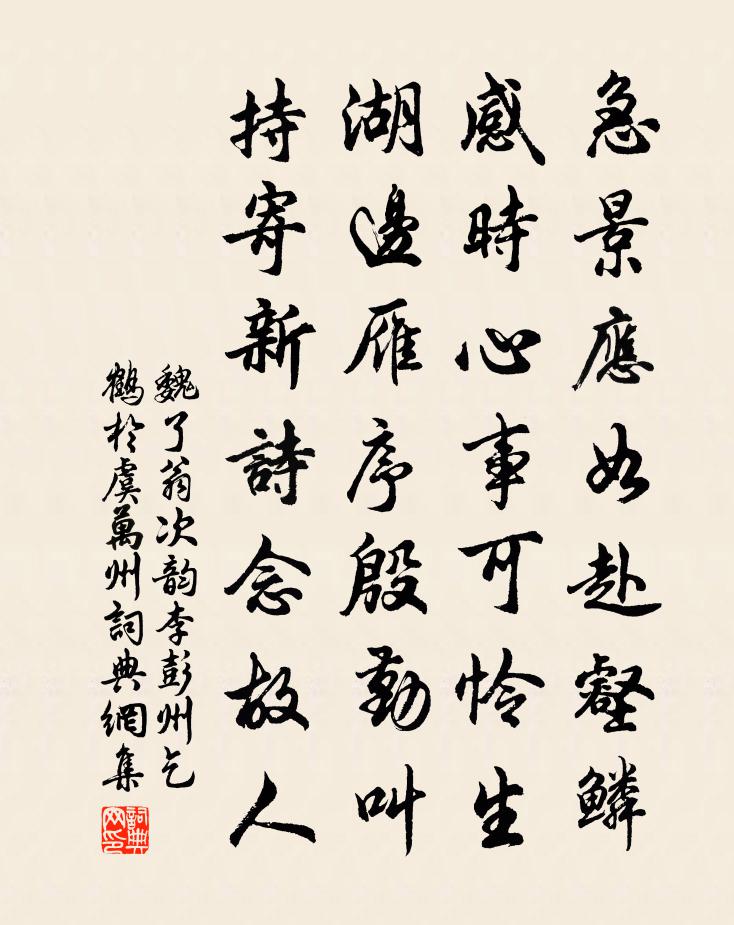 急景應如赴壑鱗
感時心事可憐生
湖邊雁序殷勤叫
持寄新詩念故人
魏了翁次韵李彭州乞
鶴於虞萬州詞典網集
詞典
网印